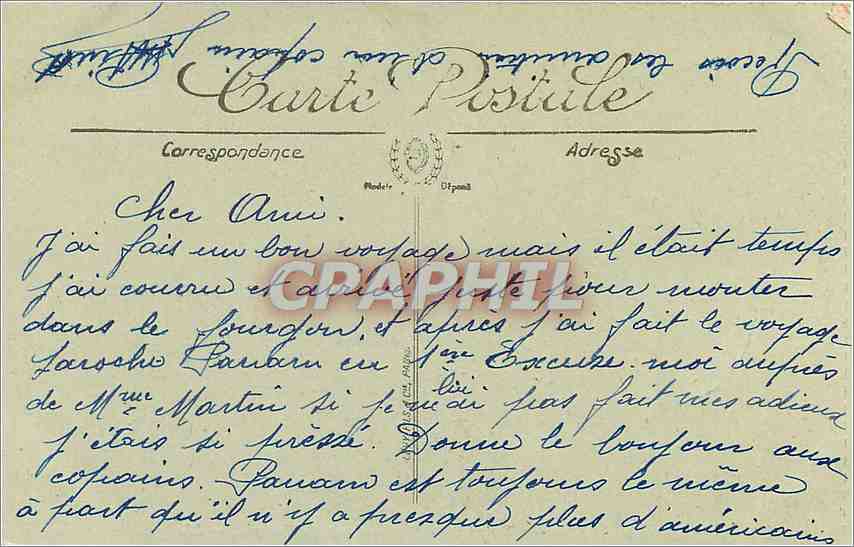 Reçois les amitiés d'un copain
Carte Postale
Correspondance
Adresse
Modèle Déposé
Cher Ami.
J'ai fais un bon voyage mais il était temps
j'ai courru et arrivé juste pour monter
dans le fourgon, et après j'ai fait le voyage
Laroche Panam en 1ère Excuse moi auprès
de Mme Martin si je lui ai pas fait mes adieux
j'étais si prèssé. Donne le bonjour aux
copains. Panam est toujours le même
à part qu'il n'y a presque plus d'américains
CPAPHIL